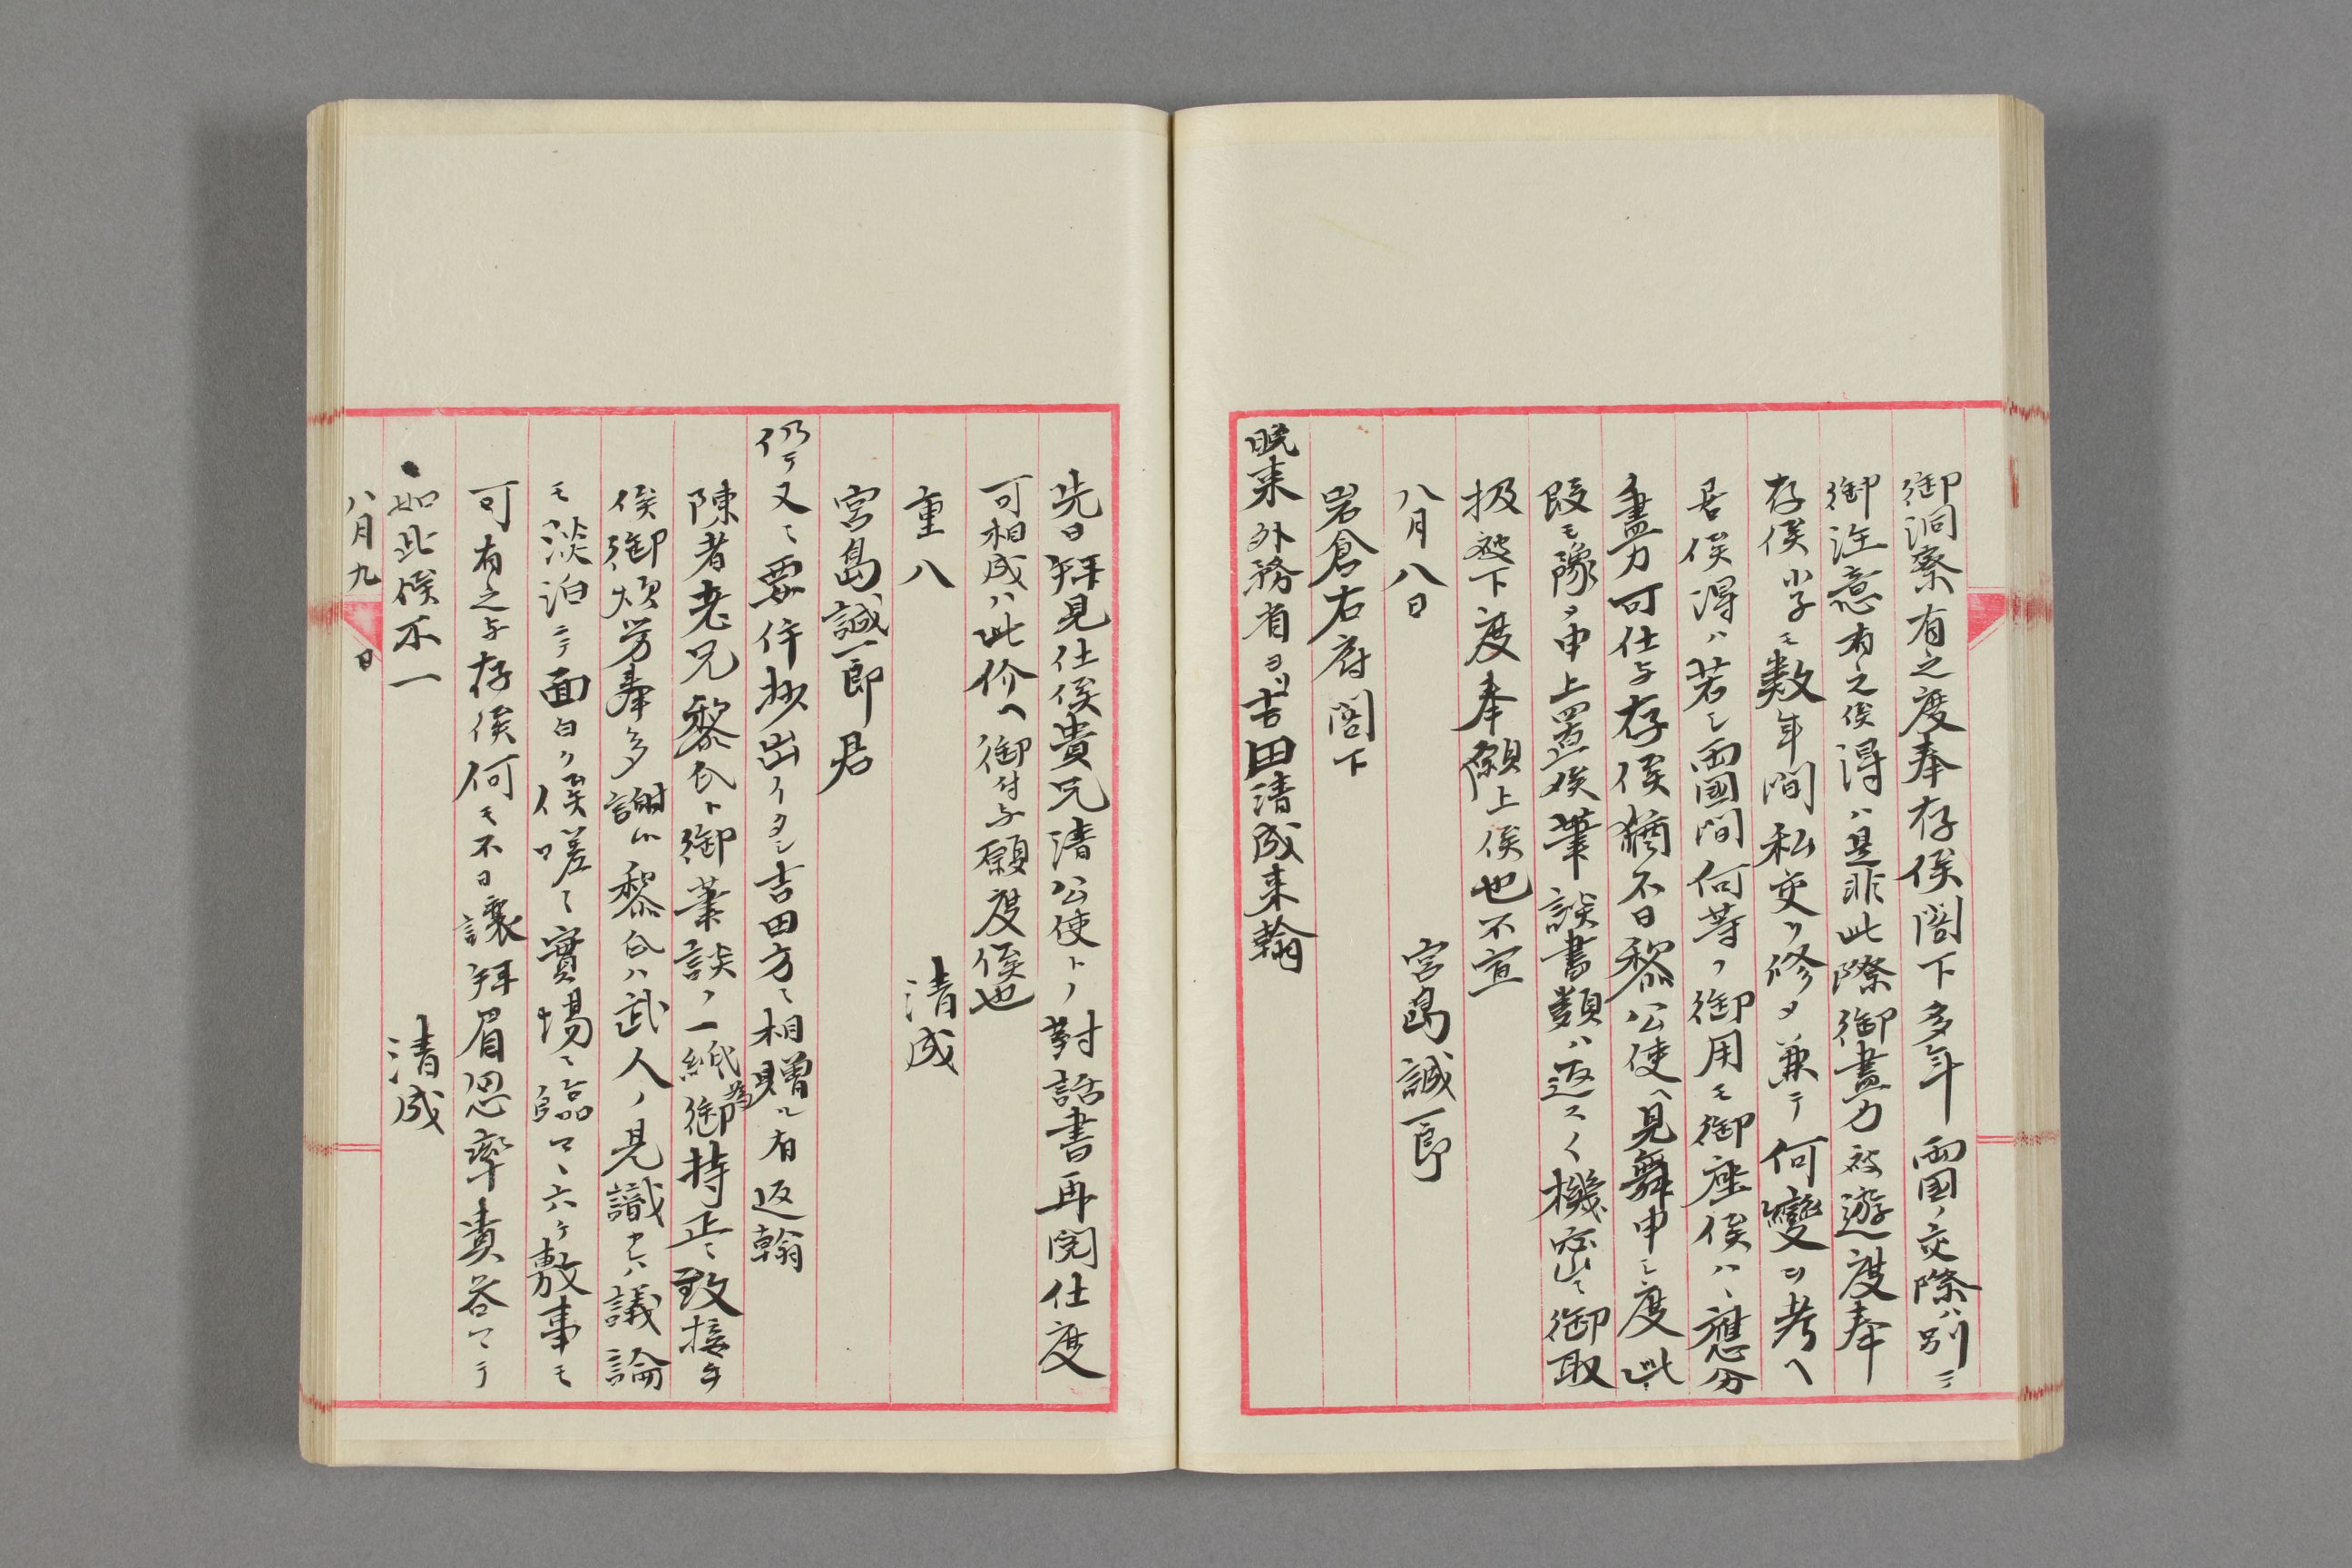 御洞察有之度奉存候閣下多年両国ノ交際ハ別ニ
御注意有之候得ハ是非此際御盡力被遊度奉
存候小子モ数年間私交ヲ修メ兼テ何變ヲ考ヘ
居候得ハ若シ両國間何等ノ御用モ御座候ハヽ應分
盡力可仕与存候猶不日黎公使ヘ見舞申シ度此
段モ豫メ申上置候筆談書類ハ返ス〱機密ニ御取
扱被下度奉願上候也不宣
八月八日
宮島誠一郎
岩倉右府閣下
晩来外務省ヨリ吉田清成来翰
先日拜見仕候貴兄清公使トノ對話書再閲仕度
可相成ハ此价ヘ御付与願度候也
重八
清成
宮島誠一郎君
仍テ又々要件抄出イタシ吉田方ニ相贈ル有返翰
陳者老兄黎氏ト御筆談ノ一紙為御持正ニ致接手
候御煩労奉多謝候黎氏ハ武人ノ見識ナレハ議論
モ淡泊ニテ面白ク候ヘ 嗟々實場ニ臨マハ六ケ敷事モ
可有之与存候何モ不日讓拜眉忽率貴答マテ
如此候不一
清成
八月九日